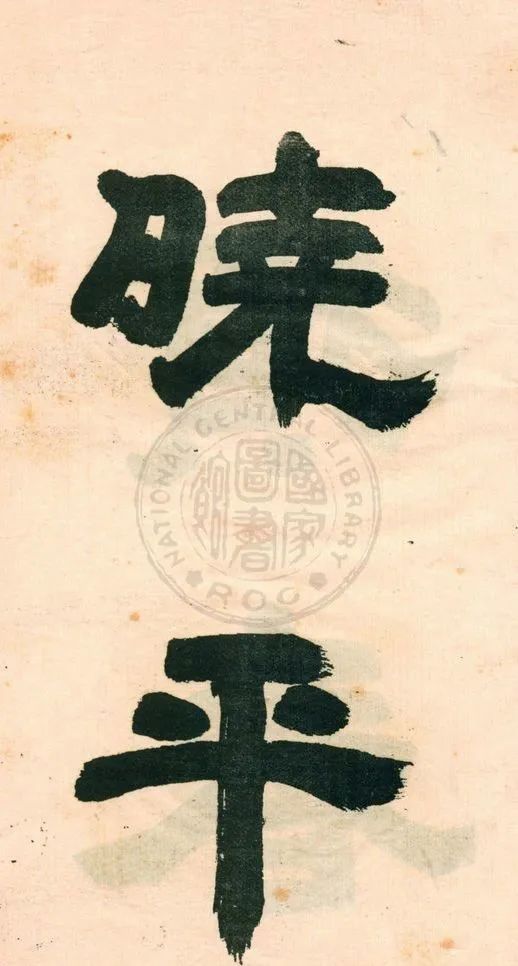 曉
平
NATIONAL CENTRAL LIBRARY
國家圖書館
ROC